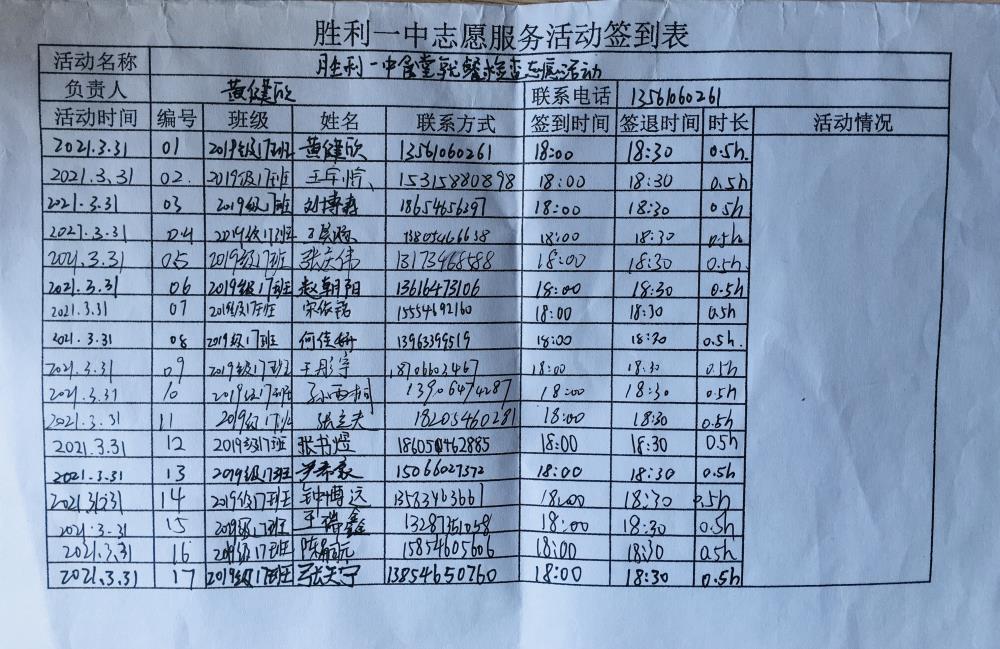 胜利一中志愿服务活动签到表
活动名称 胜利一中食堂就餐检查志愿活动
负责人 黄健欣 联系电话 13561060261
活动时间 编号 班级 姓名 联系方式 签到时间 签退时间 时长 活动情况
2021.3.31 01 2019级17班 黄健欣 13561060261 18:00 18:30 0.5h
2021.3.31 02. 2019级17班 15315880898 18:00 18:30 0.5h
2021.3.31 03 2019级17班 刘博森 18654656397 18:00 18:30 0.5h
2021.3.31 04 2019级17班 13805466638 18:00 18:30 0.5h
2021.3.31 05 2019级17班 张庆伟 18173468588 18:00 18:30 0.5h
2021.3.31 06 2019级17班 赵朝阳 13616473106 18:00 18:30 0.5h
2021.3.31 07 2019级17班 宋依诺 15554692160 18:00 18:30 0.5h
2021.3.31 08 2019级17班 何佳妍 13963399519 18:00 18:30 0.5h.
2021.3.31 09 2019级17班 王彤宇 18706603467 18:00 18:30 0.5h
2021.3.31 10 2019级17班 孙西桐 13906474287 18:00 18:30 0.5h
2021.3.31 11 2019级17班 张立夫 18205460281 18:00 18:30 0.5h
2021.3.31 12 2019级17班 张书煜 18605462885 18:00 18:30 0.5h
2021.3.31 13 2019级17班 15066027372 18:00 18:30 0.5h
2021.3.31 14 2019级17班 钟博远 13583463667 18:00 18:30 0.5h
2021.3.31 15 2019级17班 王瑞鑫 13287351058 18:00 18:30 0.5h
2021.3.31 16 2019级17班 陈航远 15854605606 18:00 18:30 0.5h
2021.3.31 17 2019级17班 张天宁 13854650760 18:00 18:30 0.5h